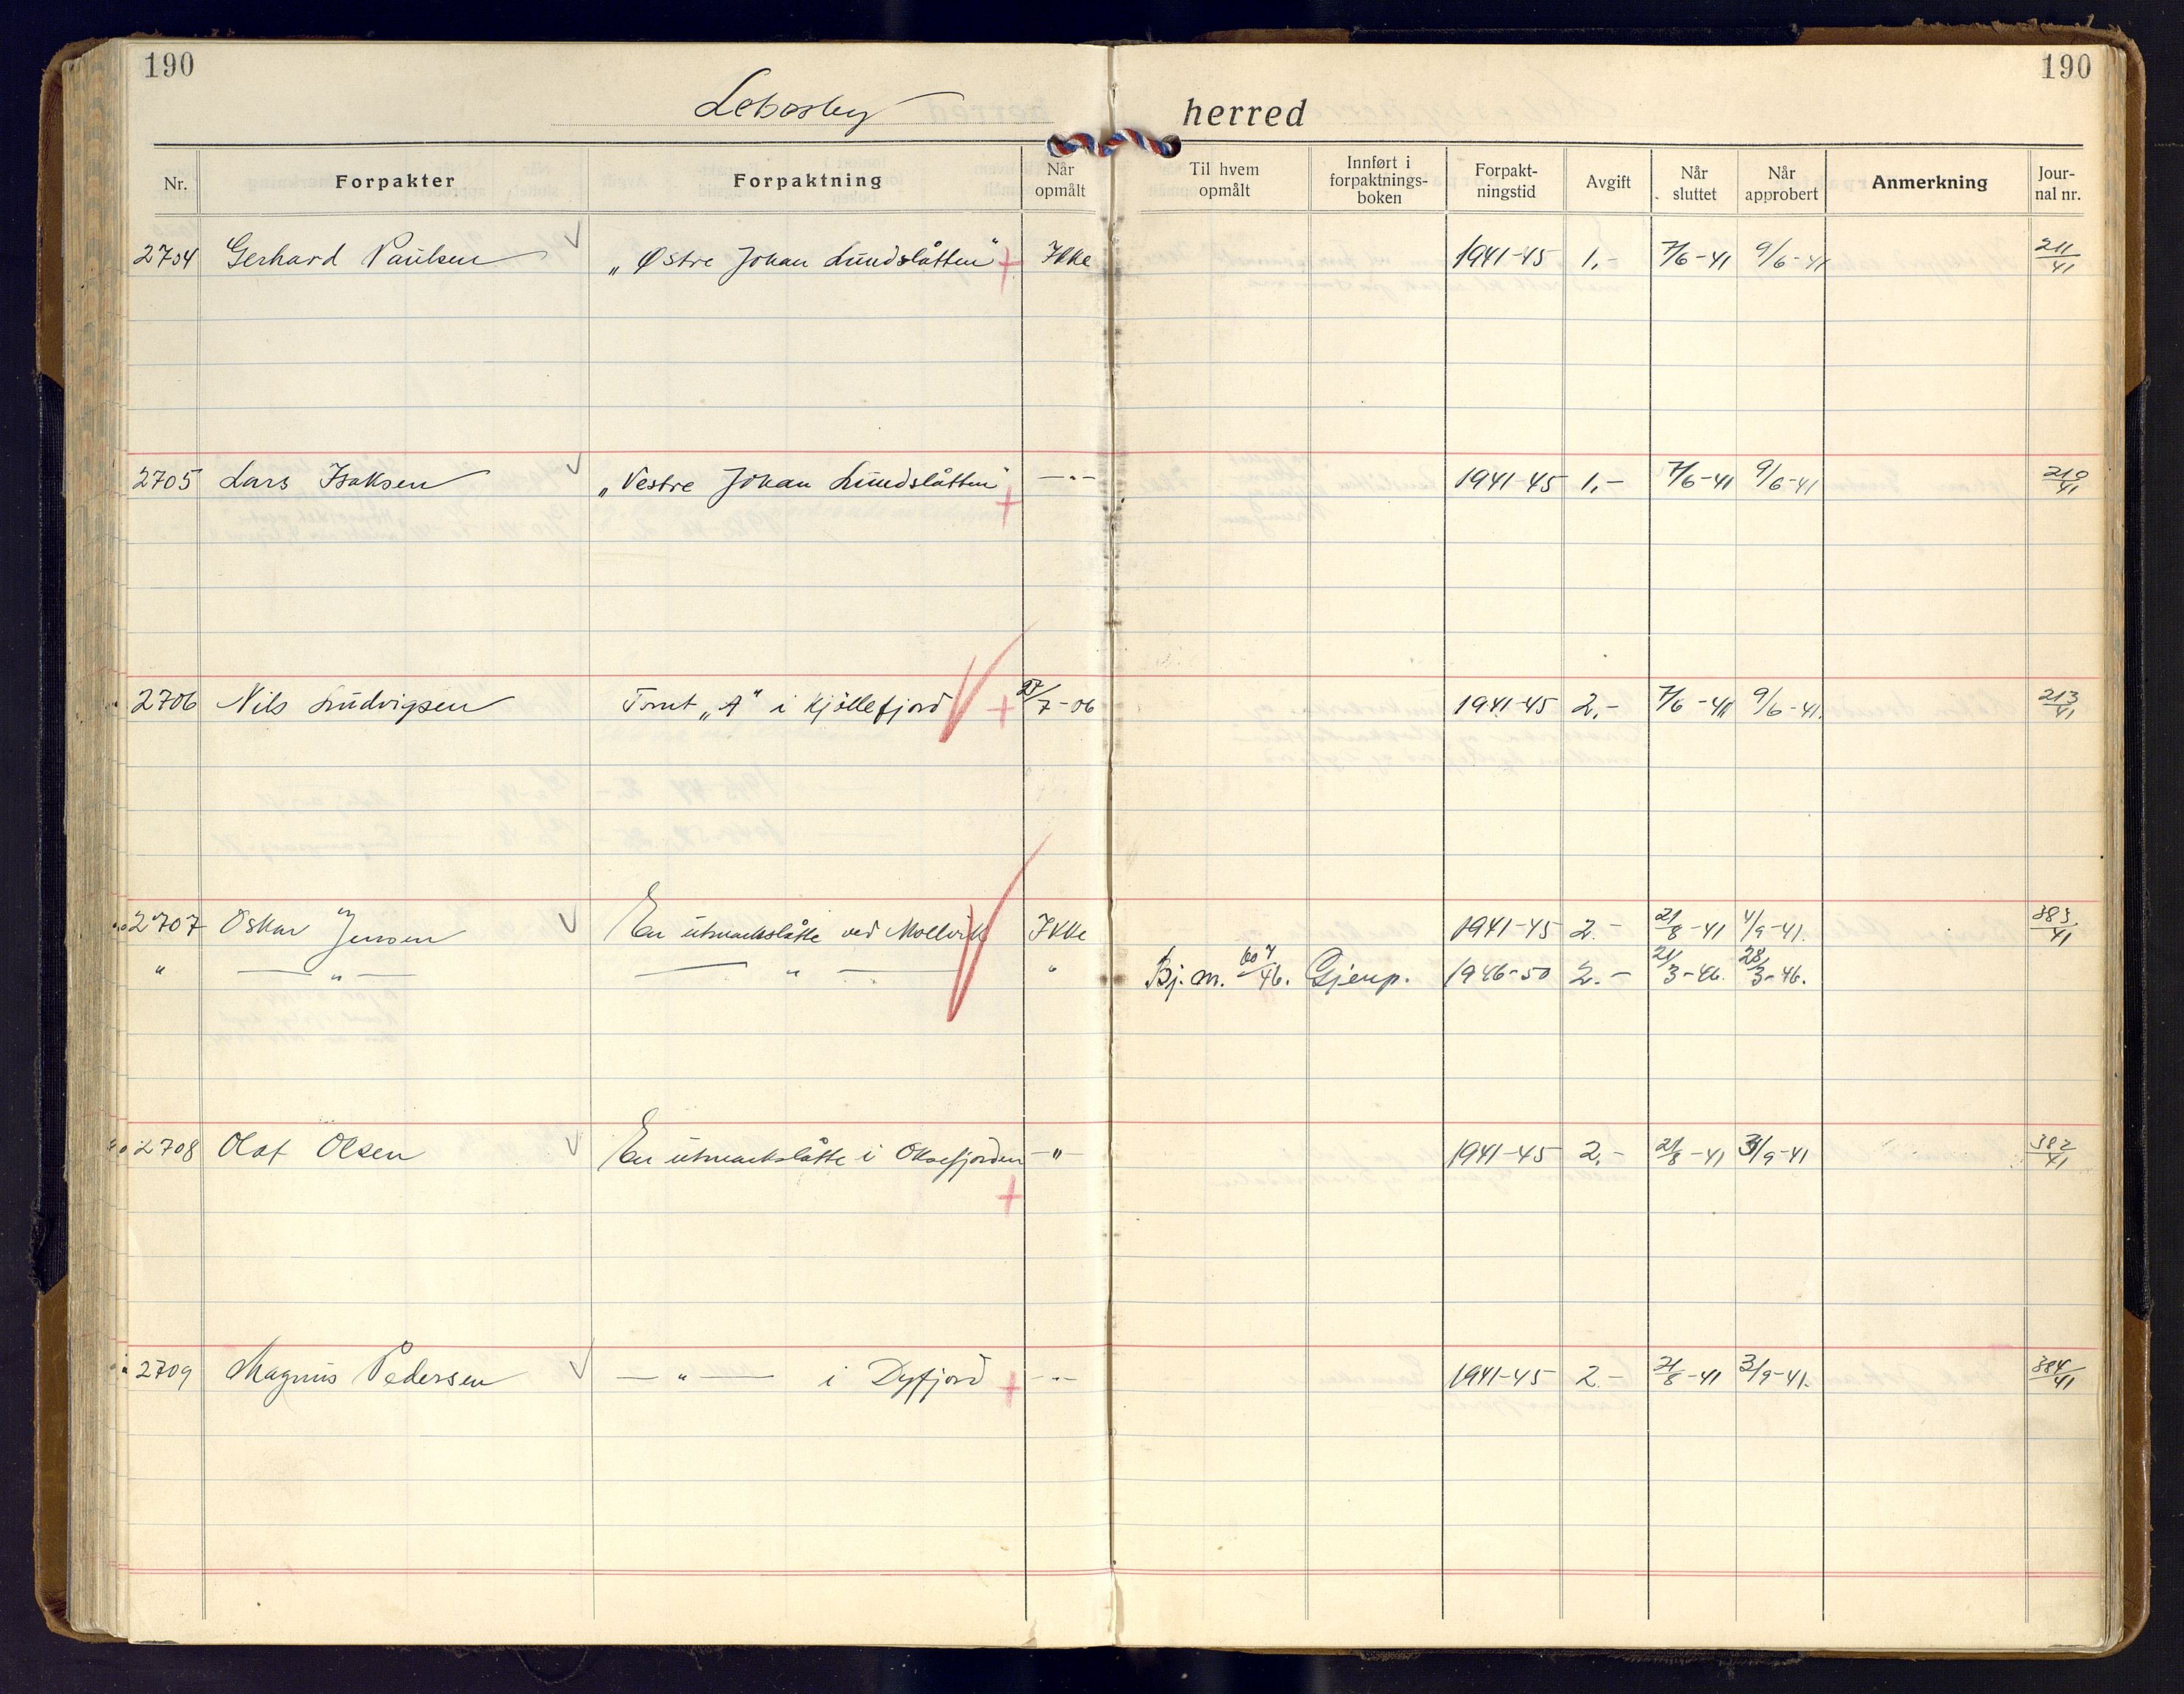 190 190
Lebesby herred
Nr. Forpakter Forpaktning Når opmålt Til hvem opmålt Innført i forpaktnings-boken Forpakt-ningstid Avgift Når sluttet Når approbert Anmerkning Jour-nal nr.
2704 Gerhard Paulsen „Østre Johan Lundslåtten" Ikke 1941-45 1.- 7/6-41 9/6-41 211/41
2705 Lars Isaksen „Vestre Johan Lundslåtten" —"— 1941-45 1.- 7/6-41 9/6-41 210/41
2706 Nils Ludvigsen Tomt „A" i Kjöllefjord 27/7-06 1941-45 2.- 7/6-41 9/6-41. 213/41
2707 Oskar Jensen En utmarkslåtte ved Mollvik Ikke 1941-45 2.- 21/8-41 4/9-41. 383/41
" —"— —"— " Bj. m. 7/46. Gjenp. 1946-50 2.- 21/3-46. 28/3-46.
2708 Olaf Olsen En utmarkslåtte i Oksefjorden —"— 1941-45 2.- 21/8-41 3/9-41 382/41
2709 Magnus Pedersen —"— i Dyfjord —"— 1941-45 2.- 21/8-41 3/9-41. 384/41